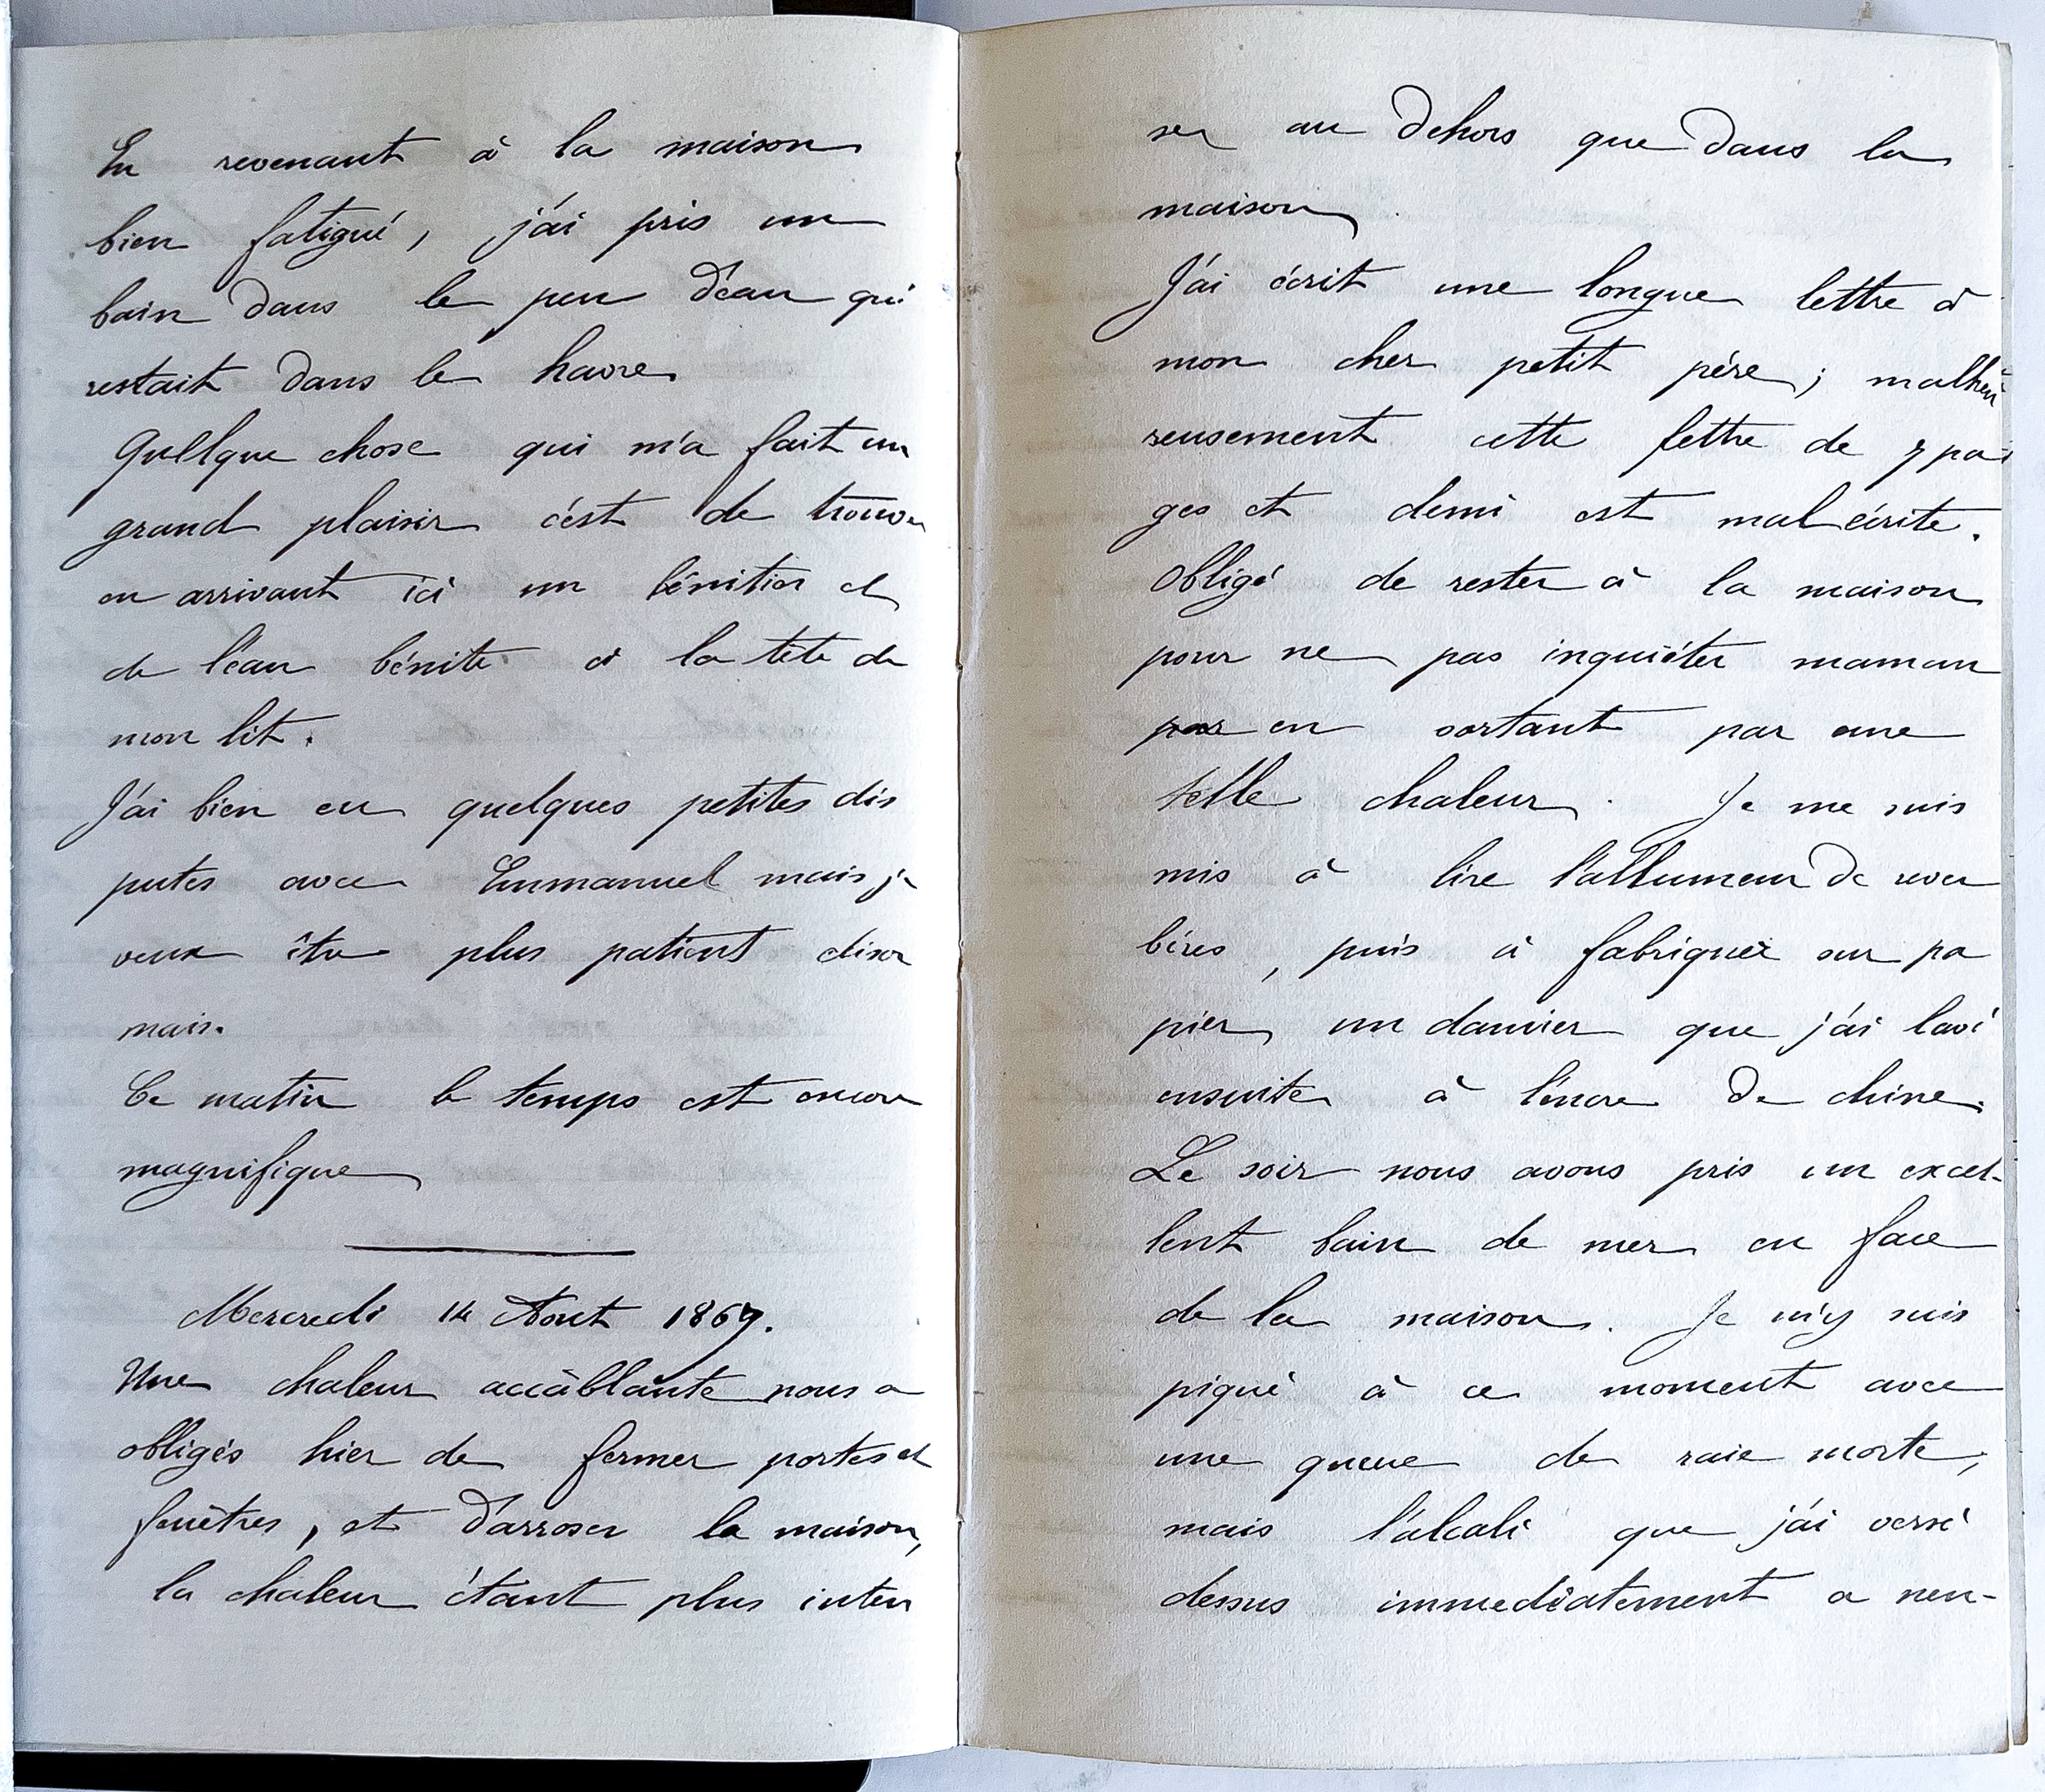 En revenant à la maison
bien fatigué, j'ai pris un
bain dans le peu d'eau qui
restait dans le havre.
Quelque chose qui m'a fait un
grand plaisir c'est de trouver
en arrivant ici un bénitier et
de l'eau bénite à la tête de
mon lit.
J'ai bien eu quelques petites dis
putes avec Emmanuel mais je
veux être plus patient désor
mais.
Ce matin le temps est encore
magnifique
Mercredi 14 Aout 1867.
Une chaleur accâblante nous a
obligés hier de fermer portes et
fenêtres, et d'arroser la maison,
la chaleur étant plus inten
se au dehors que dans la
maison.
J'ai écrit une longue lettre à
mon cher petit père; malheu
reusement cette lettre de 7 pa
ges et demi est mal écrite.
Obligé de rester à la maison
pour ne pas inquiéter maman
en sortant par une
telle chaleur. Je me suis
mis à lire l'allumeur de rever
bères, puis à fabriquer sur pa
pier, un damier que j'ai lavé
ensuite à l'encre de chine.
Le soir nous avons pris un excel-
lent bain de mer en face
de la maison. Je m'y suis
piqué à ce moment avec
une queue de raie morte,
mais l'alcali que j'ai versé
dessus immediatement a neu-